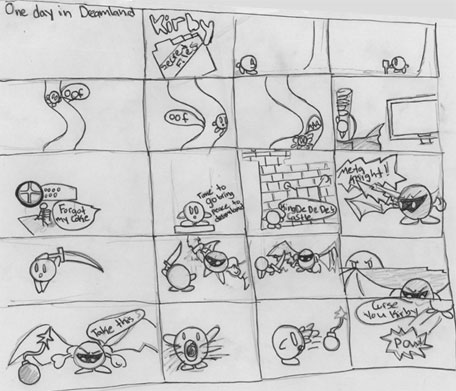 One day in Deamland
Kirby
oof
oof
Forgot
my cake
Time to
go bring
peace to
dreamland
King De De De's
Castle
Meta
Knight!
Take this
Curse
You Kirby
POW!